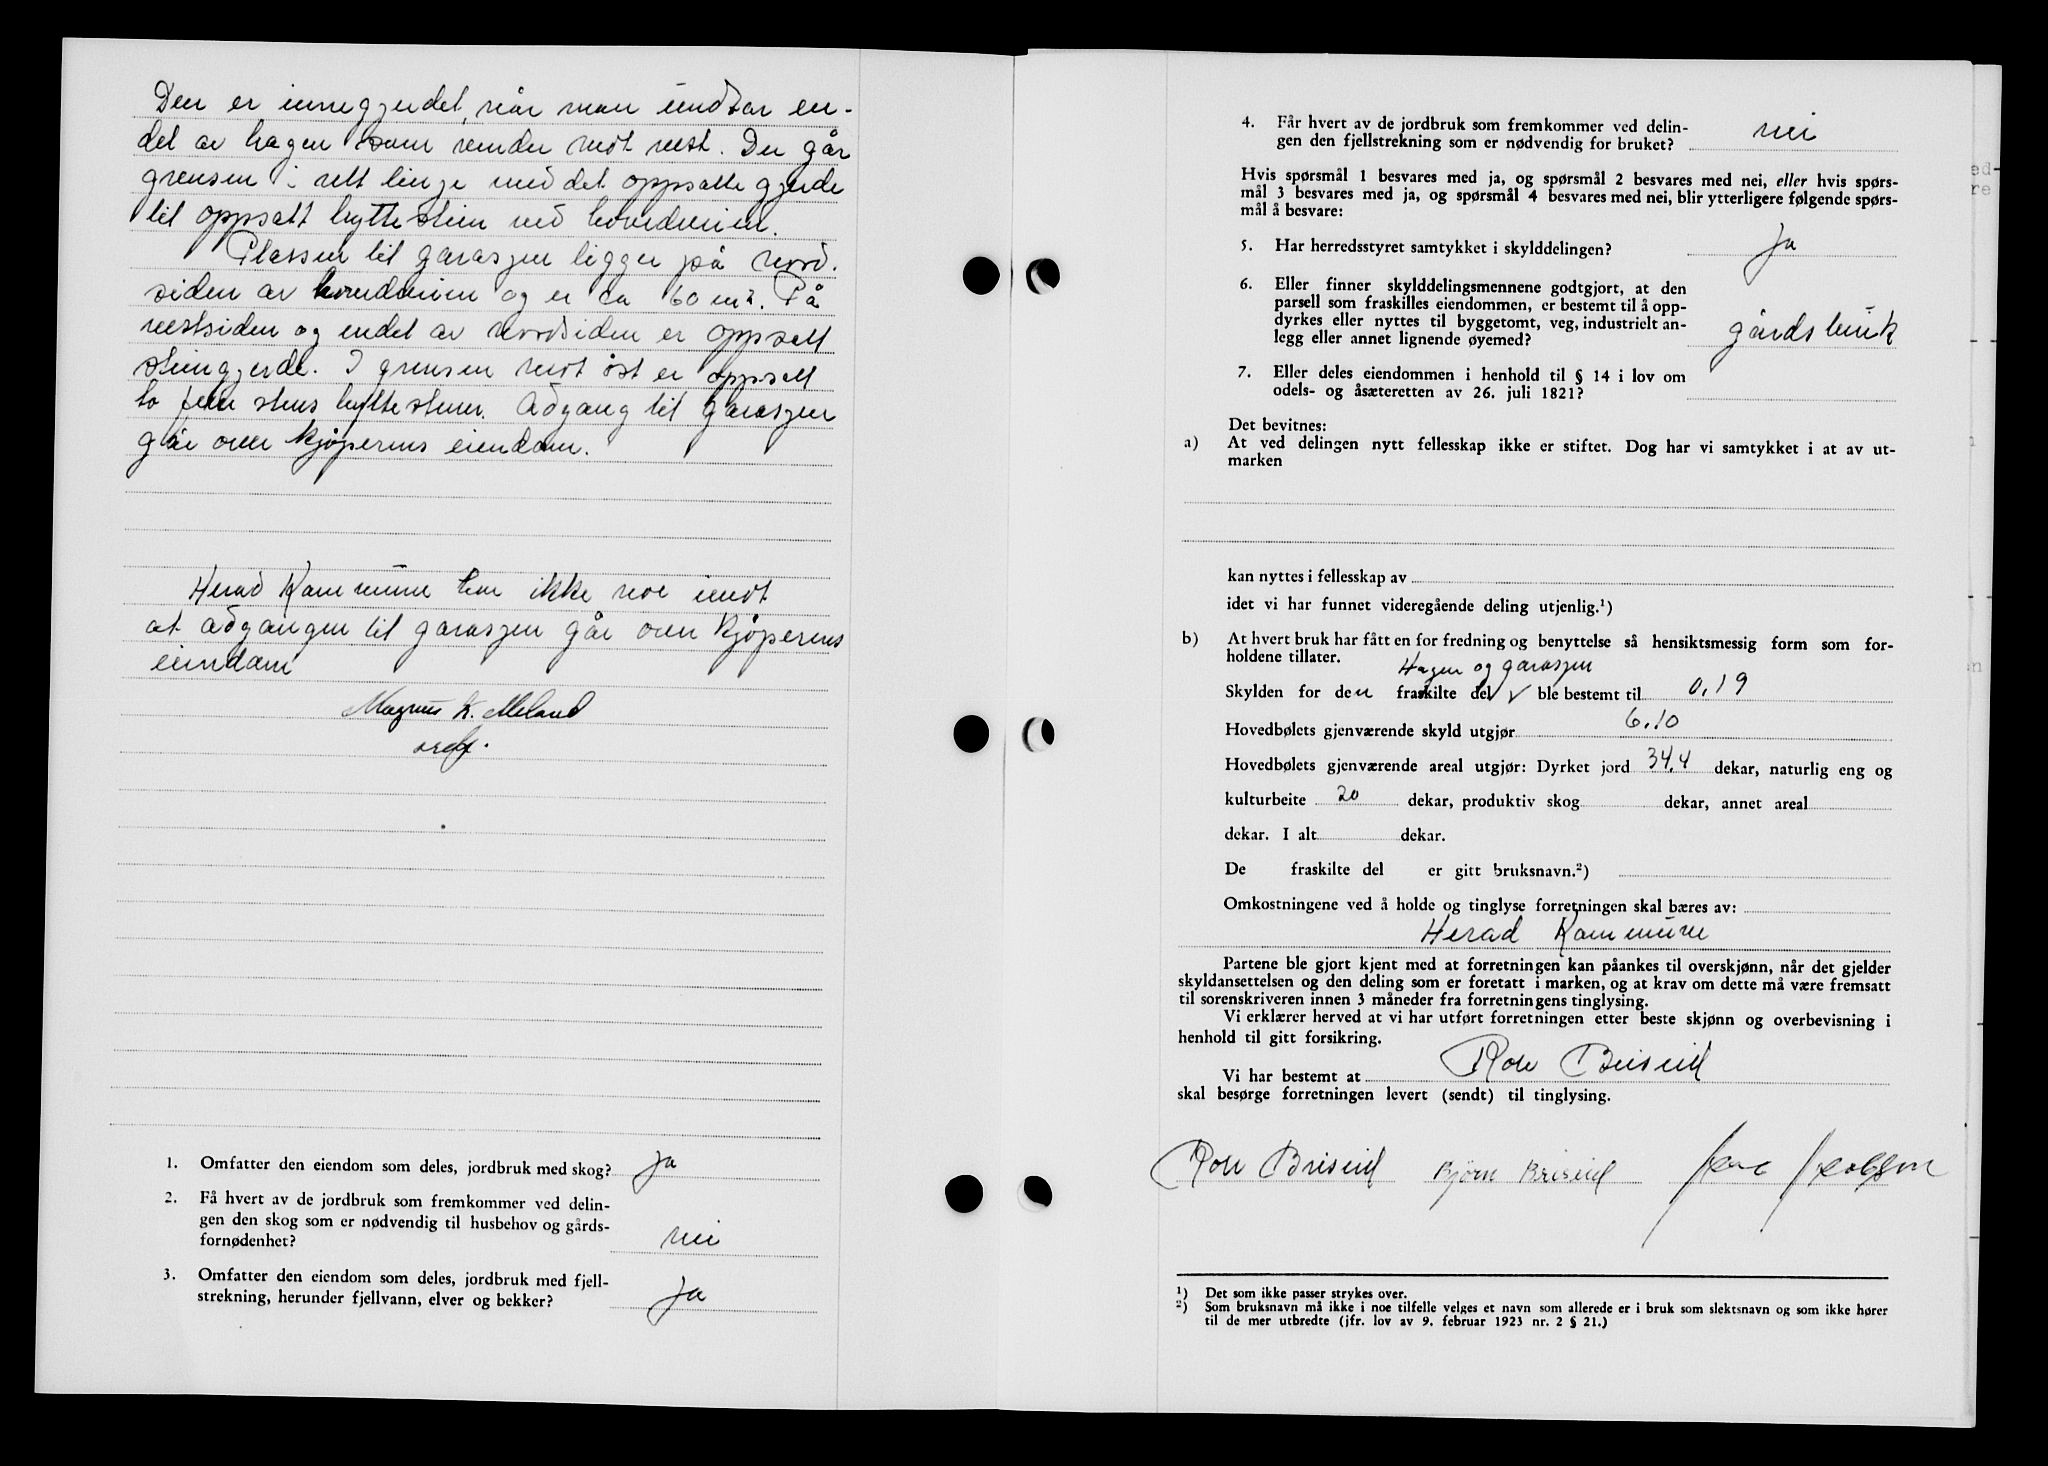 Den er innegjerdet, når man undtar en-
del av hagen som vender mot vest. Der går
grensen i rett linje med det oppsatte gjerde
til oppsatt byttestein ved hovedveien.
Plassen til garasjen ligger på nord.
siden av hovedveien og er ca 60 m². På
vestsiden og endel av nordsiden er oppsatt
steingjerde. I grensen mot öst er oppsatt
to fem stens byttesteiner. Adgang til garasjen
går over kjøperens eiendom.
Herad Kommune har ikke noe imot
at adgangen til garasjen går over kjøperens
eiendom
Magnus K. Meland
ordf.
1. Omfatter den eiendom som deles, jordbruk med skog? ja
2. Få hvert av de jordbruk som fremkommer ved delin-
gen den skog som er nødvendig til husbehov og gårds-
fornødenhet? nei
3. Omfatter den eiendom som deles, jordbruk med fjell-
strekning, herunder fjellvann, elver og bekker? ja
4. Får hvert av de jordbruk som fremkommer ved delin-
gen den fjellstrekning som er nødvendig for bruket? nei
Hvis spørsmål 1 besvares med ja, og spørsmål 2 besvares med nei, eller hvis spørs-
mål 3 besvares med ja, og spørsmål 4 besvares med nei, blir ytterligere følgende spørs-
mål å besvare:
5. Har herredsstyret samtykket i skylddelingen? Ja
6. Eller finner skylddelingsmennene godtgjort, at den
parsell som fraskilles eiendommen, er bestemt til å opp-
dyrkes eller nyttes til byggetomt, veg, industrielt an-
legg eller annet lignende øyemed? gårdsbruk
7. Eller deles eiendommen i henhold til § 14 i lov om
odels- og åsæteretten av 26. juli 1821?
Det bevitnes:
a) At ved delingen nytt fellesskap ikke er stiftet. Dog har vi samtykket i at av ut-
marken
kan nyttes i fellesskap av
idet vi har funnet videregående deling utjenlig.¹)
b) At hvert bruk har fått en for fredning og benyttelse så hensiktsmessig form som for-
holdene tillater.
Hagen og garasjen
Skylden for den fraskilte del ble bestemt til 0,19
Hovedbølets gjenværende skyld utgjør 6.10
Hovedbølets gjenværende areal utgjør: Dyrket jord 34,4 dekar, naturlig eng og
kulturbeite 20 dekar, produktiv skog dekar, annet areal
dekar. I alt dekar.
De fraskilte del er gitt bruksnavn.²)
Omkostningene ved å holde og tinglyse forretningen skal bæres av:
Herad Kommune
Partene ble gjort kjent med at forretningen kan påankes til overskjønn, når det gjelder
skyldansettelsen og den deling som er foretatt i marken, og at krav om dette må være fremsatt
til sorenskriveren innen 3 måneder fra forretningens tinglysing.
Vi erklærer herved at vi har utført forretningen etter beste skjønn og overbevisning i
henhold til gitt forsikring.
Vi har bestemt at Rolv Briseid
skal besørge forretningen levert (sendt) til tinglysing.
Rolv Briseid Bjørn Briseid
¹) Det som ikke passer strykes over.
²) Som bruksnavn må ikke i noe tilfelle velges et navn som allerede er i bruk som slektsnavn og som ikke hører
til de mer utbredte (jfr. lov av 9. februar 1923 nr. 2 § 21.)